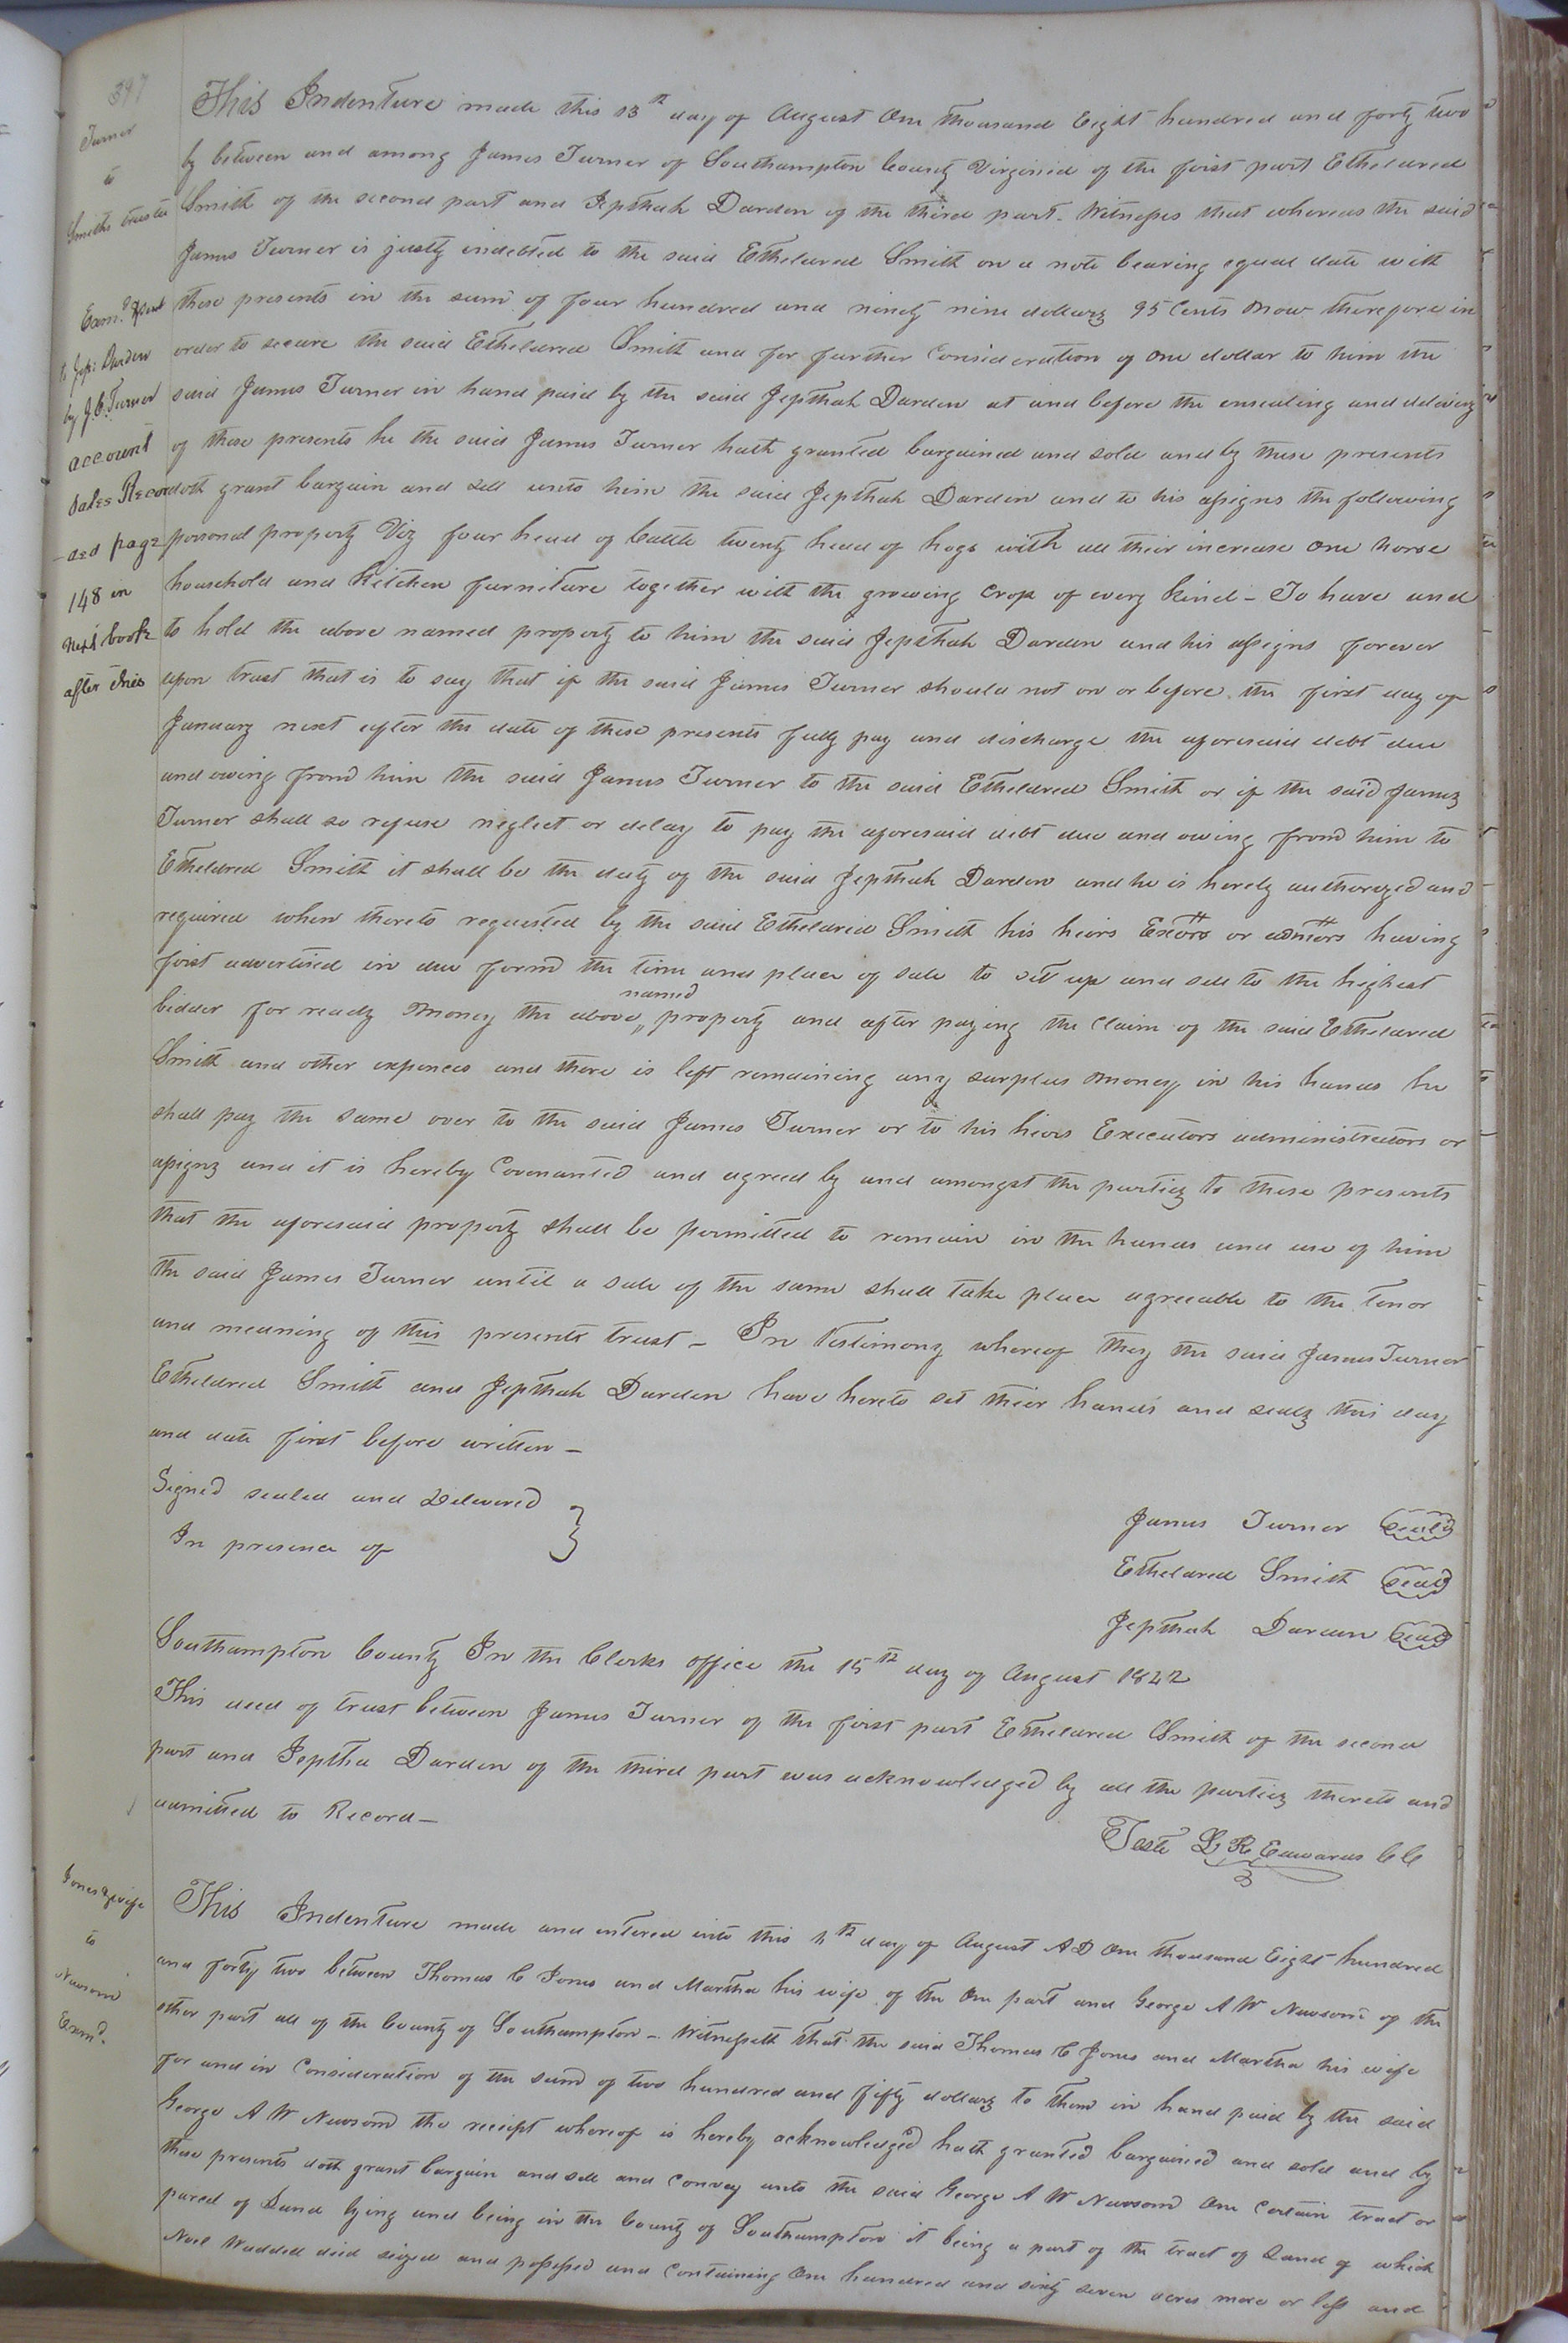 397
Turner
to
Smiths trustee
Exam.d & sent
to Jep: Darden
by J. C. Turner
account
Sales Record
-ded page
148 in
next book
after this
This Indenture made this 13th day of August One thousand Eight hundred and forty two
by between and among James Turner of Southampton County Virginia of the first part Etheldred
Smith of the second part and Jepthah Darden of the third part. Witnesses that whereas the said
James Turner is justly indebted to the said Etheldred Smith on a note bearing equal date with
these presents in the sum of four hundred and ninety nine dollars 95 Cents Now therefore in
order to secure the said Etheldred Smith and for further Consideration of one dollar to him the
said James Turner in hand paid by the said Jepthah Darden at and before the ensealing and delivery
of these presents he the said James Turner hath granted bargained and sold and by these presents
doth grant bargain and sell unto him the said Jepthah Darden and to his assigns the following
personal property Viz four head of Cattle twenty head of hogs with all their increase one horse
household and kitchen furniture together with the growing Crop of every kind - To have and
to hold the above named property to him the said Jepthah Darden and his assigns forever
upon trust that is to say that if the said James Turner should not on or before the first day of
January next after the date of these presents fully pay and discharge the aforesaid debt due
and owing from him the said James Turner to the said Etheldred Smith or if the said James
Turner shall so refuse neglect or delay to pay the aforesaid debt due and owing from him to
Etheldred Smith it shall be the duty of the said Jepthah Darden and he is hereby authorized and
required when thereto requested by the said Etheldred Smith his heirs Exors or admors having
first advertised in due form the time and place of sale to set up and sell to the highest
bidder for ready Money the above named property and after paying the Claim of the said Etheldred
Smith and other expences and there is left remaining any surplus Money in his hands he
shall pay the same over to the said James Turner or to his heirs Executors administrators or
assigns and it is hereby Covenanted and agreed by and amongst the parties to these presents
that the aforesaid property shall be permitted to remain in the hands and use of him
the said James Turner until a sale of the same shall take place agreeable to the tenor
and meaning of this presents trust - In Testimony whereof they the said James Turner
Etheldred Smith and Jepthah Darden have hereto set their hands and seals this day
and date first before written -
Signed sealed and Delivered }
In presence of
James Turner Seal
Etheldred Smith Seal
Jepthah Darden Seal
Southampton County In the Clerks office the 15th day of August 1842
This deed of trust between James Turner of the first part Etheldred Smith of the second
part and Jeptha Darden of the third part was acknowledged by all the parties thereto and
admitted to Record -
Teste L R Edwards CC
Jones & wife
to
Newsom
Exmd.
This Indenture made and entered into this day of August AD One thousand Eight hundred
and forty two between Thomas C Jones and Martha his wife of the One part and George A W Newsom of the
other part all of the County of Southampton - Witnesseth that the said Thomas C Jones and Martha his wife
for and in Consideration of the sum of two hundred and fifty dollars to them in hand paid by the said
George A W Newsom the receipt whereof is hereby acknowledged hath granted bargained and sold and by
these presents doth grant bargain and sell and Convey unto the said George A W Newsom One Certain tract or
parcel of Land lying and being in the County of Southampton it being a part of the tract of Land of which
Noel Waddell died seized and possessed and Containing One hundred and sixty seven acres more or less and